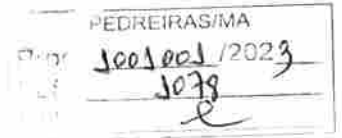 PEDREIRAS/MA
Proc 1001001/2023
1078